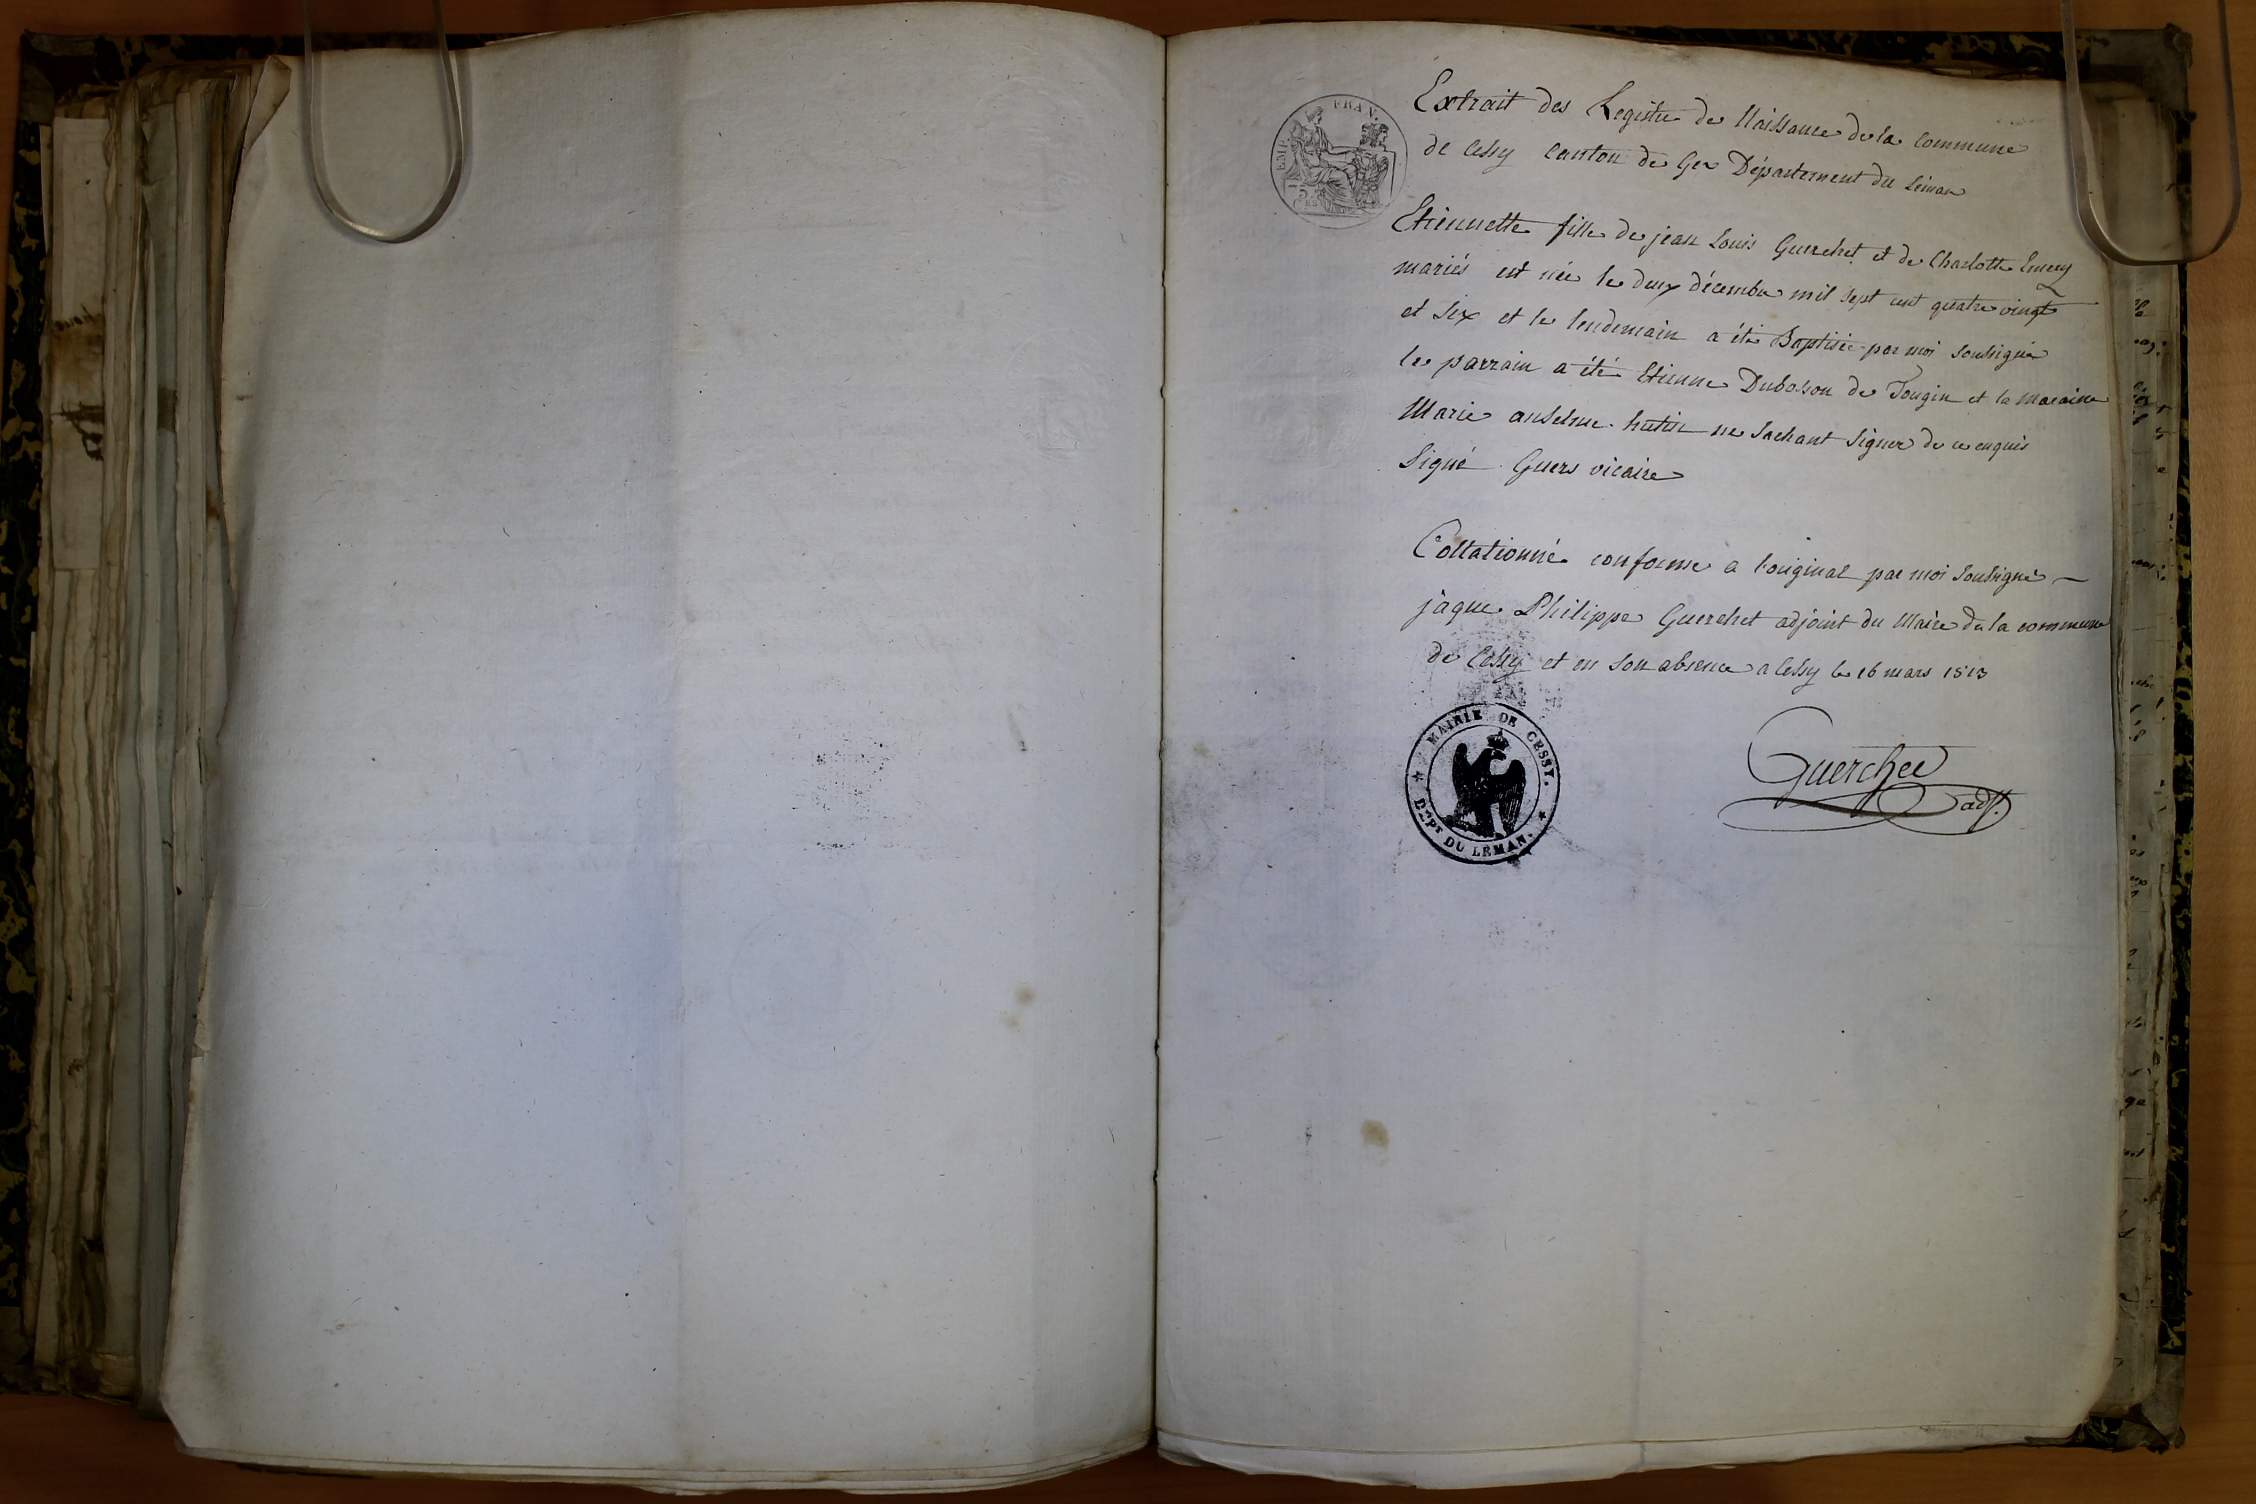 EMP. FRAN.
75
Extrait des Registre de Naissance de la commune
de Cessy canton de Gex Département du Léman
Etiennette fille de jean Louis Guerchet et de Charlotte Emery
mariés est née le deux décembre mil sept cent quatre vingt
et six et le lendemain a été Baptisée par moi soussigné
le parrain a été Etienne Duboson de Tougin et la maraine
Marie anselme hutin ne sachant signer de ce enquis
signé Guers vicaire
Collationné conforme a l'original par moi soussigné
jaque Philippe Guerchet adjoint du Maire de la commune
de Cessy et en son absence a Cessy le 16 mars 1813
MAIRIE DE CESSY.
DÉPT DU LEMAN.
Guerchet
adjt.